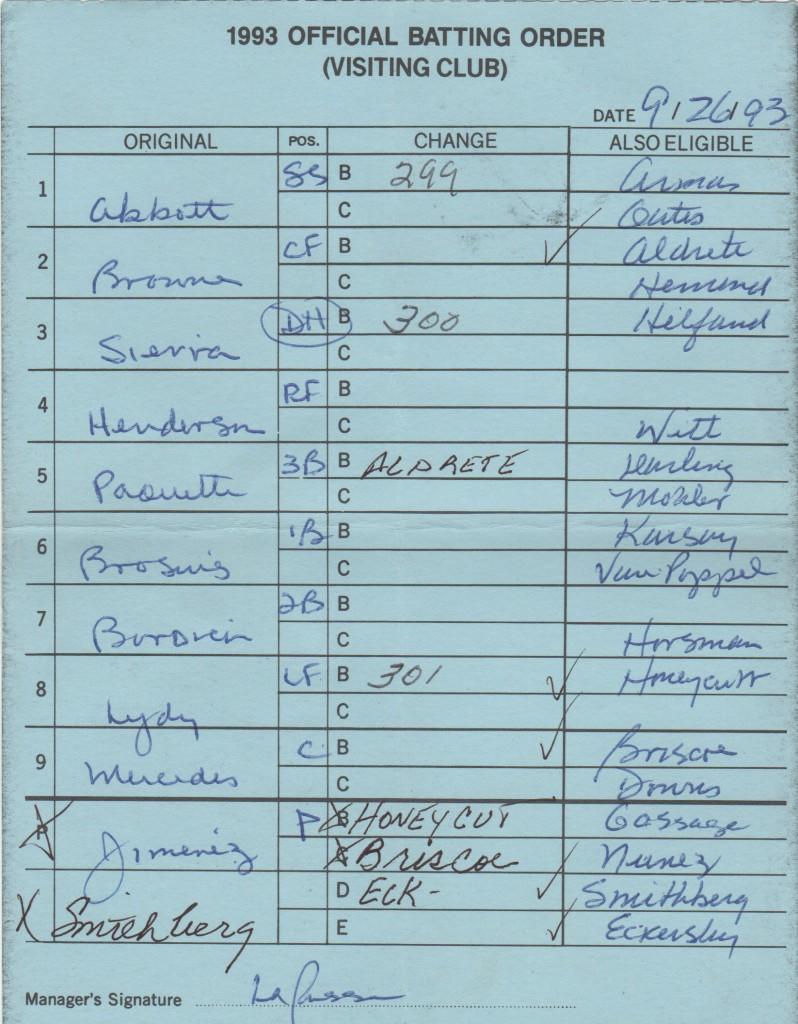 1993 OFFICIAL BATTING ORDER
(VISITING CLUB)
DATE 9/26/93
ORIGINAL POS. CHANGE ALSO ELIGIBLE
1 Abbott SS B 299 Armas
C Gates
2 Browne CF B Aldrete
C Hemond
3 Sierra DH B 300 Helfand
C
4 Henderson RF B
C Witt
5 Paquette 3B B ALDRETE Darling
C Mohler
6 Brosius 1B B Karsay
C Van Poppel
7 Bordick 2B B
C Horsman
8 Lydy LF B 301 Honeycutt
C
9 Mercedes C B Briscoe
C Downs
P Jimenez P B HONEYCUT Gossage
C Briscoe Nunez
D ECK- Smithberg
X Smithberg E Eckersley
Manager's Signature La Russa